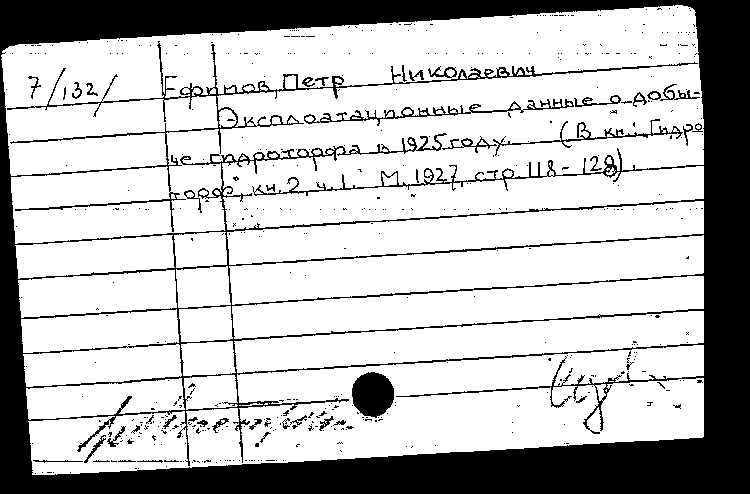 7/132/ Ефимов, Петр Николаевич
Эксплоатационные данные о добы-
че гидроторфа в 1925 году. (В кн.: "Гидро
торф", кн. 2, ч. 1. М., 1927, стр. 118-128).